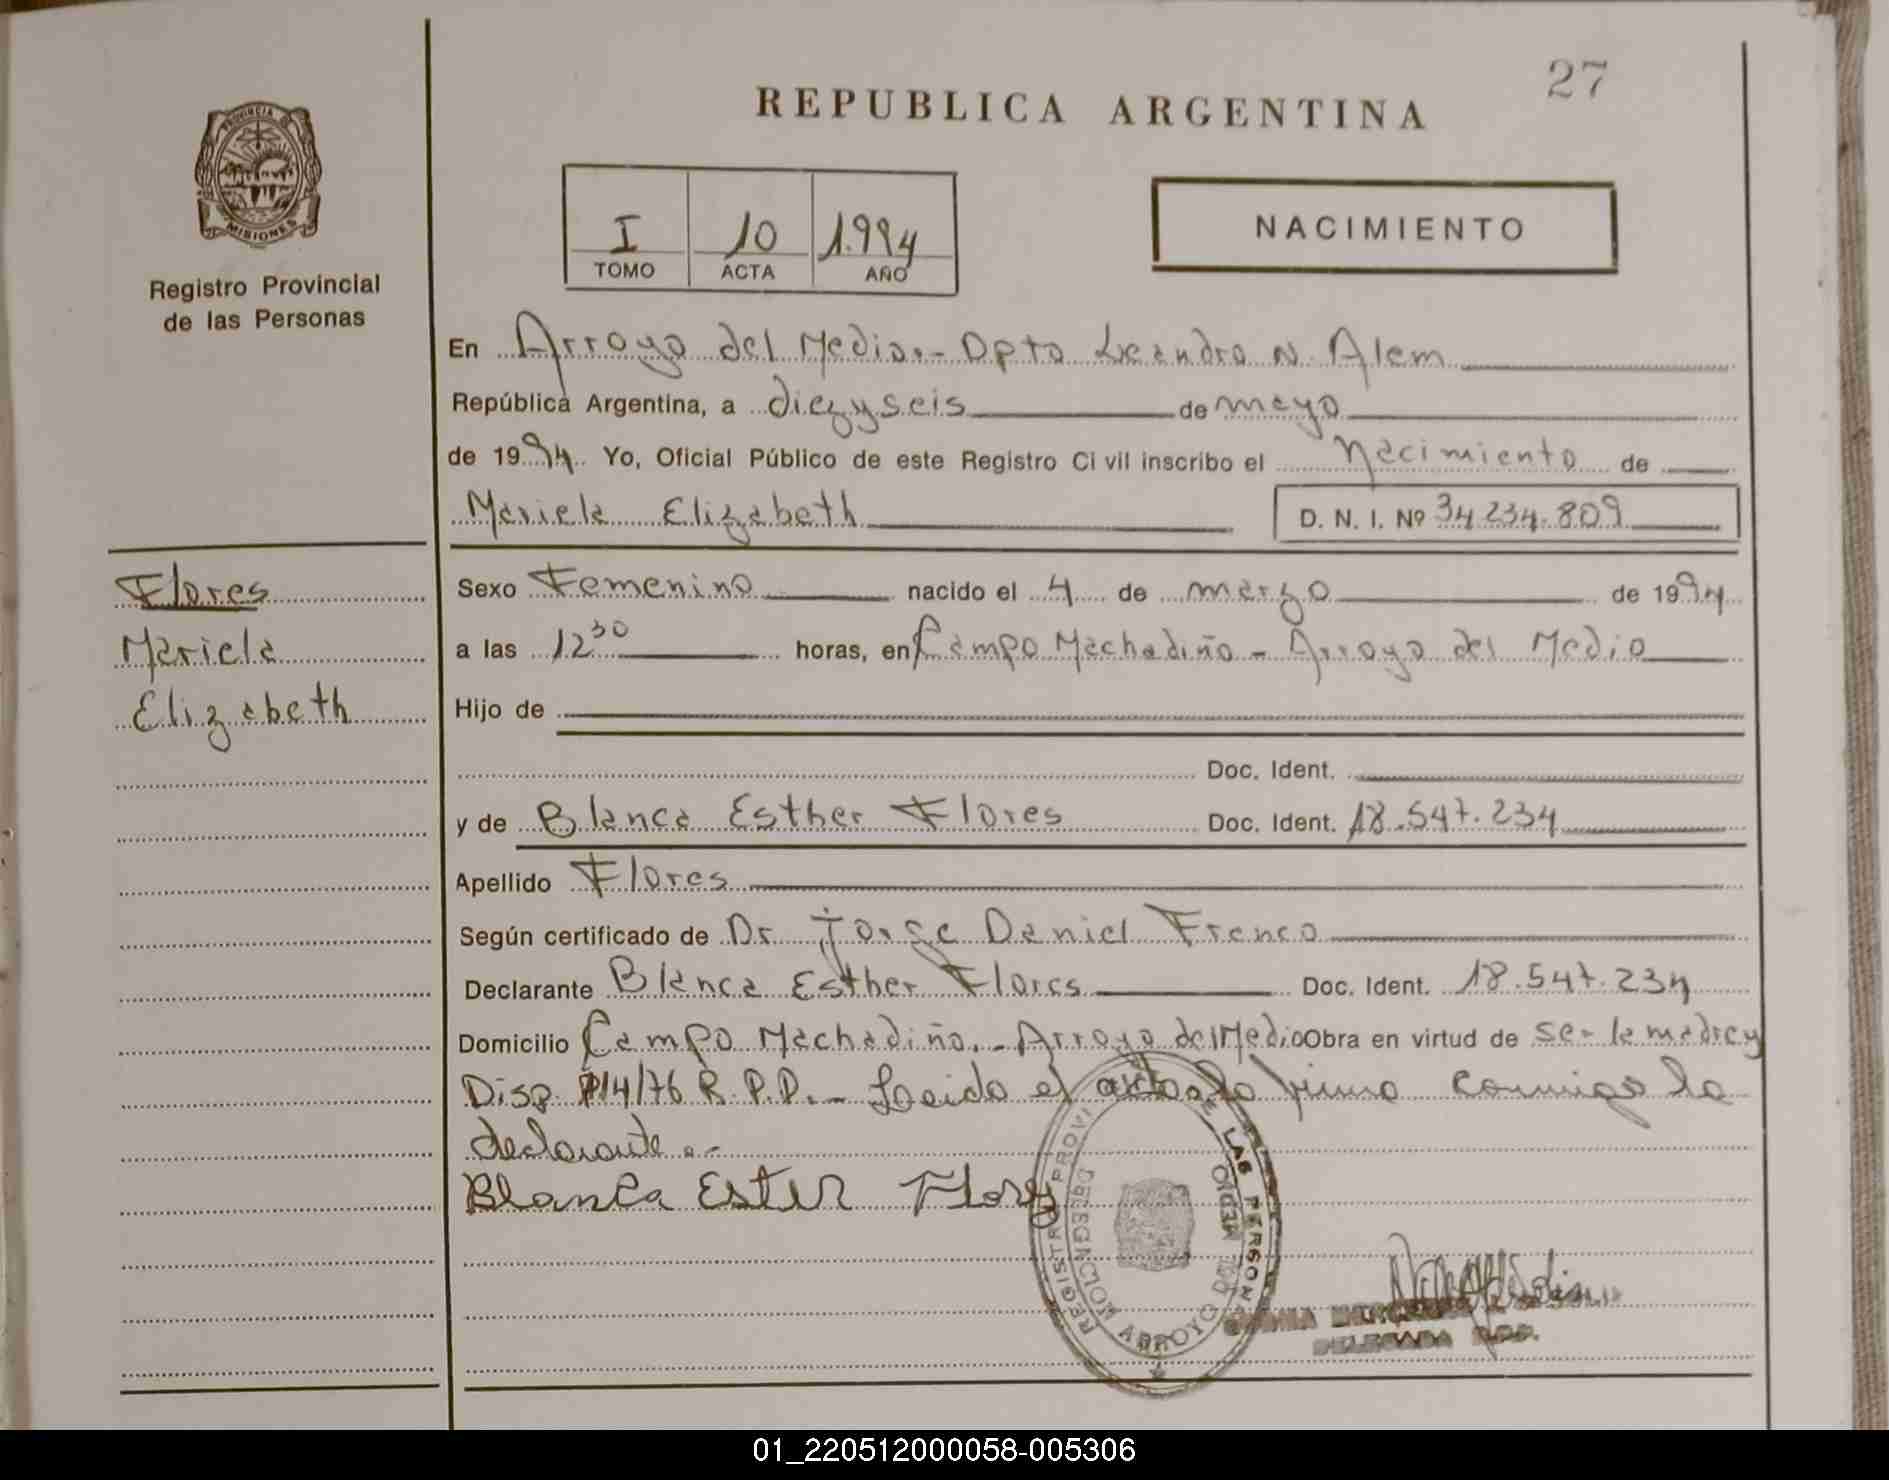 27
REPUBLICA ARGENTINA
PROVINCIA DE
MISIONES
Registro Provincial
de las Personas
I 10 1.994
TOMO ACTA AÑO
NACIMIENTO
En Arroyo del Medio.- Dpto Leandro N. Alem
República Argentina, a diezyseis de mayo
de 1994 Yo, Oficial Público de este Registro Ci vil inscribo el Nacimiento de
Mariela Elizabeth D. N. I. Nº 34.234.809
Flores
Mariela
Elizabeth
Sexo Femenino nacido el 4 de marzo de 1994
a las 12 30 horas, en Campo Machadiño - Arroyo del Medio
Hijo de
Doc. Ident.
y de Blanca Esther Flores Doc. Ident. 18.547.234
Apellido Flores
Según certificado de Dr. Jorge Daniel Franco
Declarante Blanca Esther Flores Doc. Ident. 18.547.234
Domicilio Campo Machadiño.- Arroyo del Medio Obra en virtud de ser la madre y
Disp. 14/76 R.P.P.- Leido el acta la firma conmigo la
declarante.-
Blanca Ester Flores
REGISTRO PROVINCIAL DE LAS PERSONAS
DELEGACION ARROYO DEL MEDIO
DELEGADA R.P.P.
01_220512000058-005306